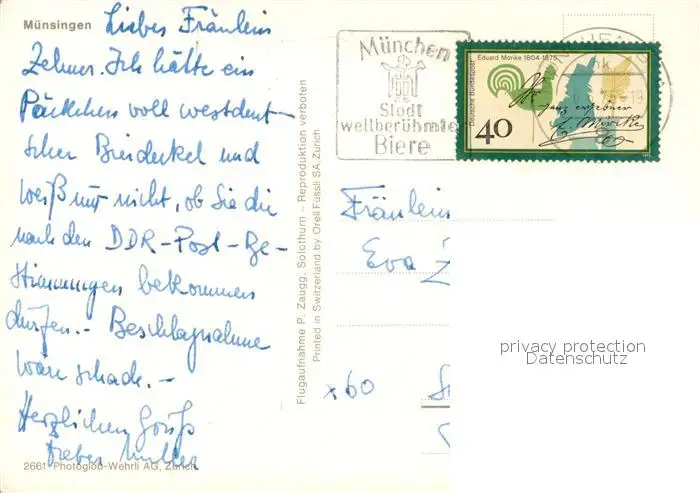 Münsingen
Liebes Fräulein
Zehner. Ich hätte ein
Päckchen voll westdeut-
scher Bierdeckel und
weiß nur nicht, ob Sie die
nach den DDR-Post-Be-
stimmungen bekommen
dürfen.- Beschlagnahme
wäre schade.-
Herzlichen Gruß
Müller
2661 Photoglob-Wehrli AG, Zürich
Flugaufnahme P. Zaugg, Solothurn – Reproduktion verboten
Printed in Switzerland by Orell Füssli SA, Zürich
München
Stadt
weltberühmter
Biere
Eduard Mörike 1804-1875
Deutsche Bundespost
ganz ergebner
E. Mörike
40
Fräulein
Eva Z
x60
privacy protection
Datenschutz